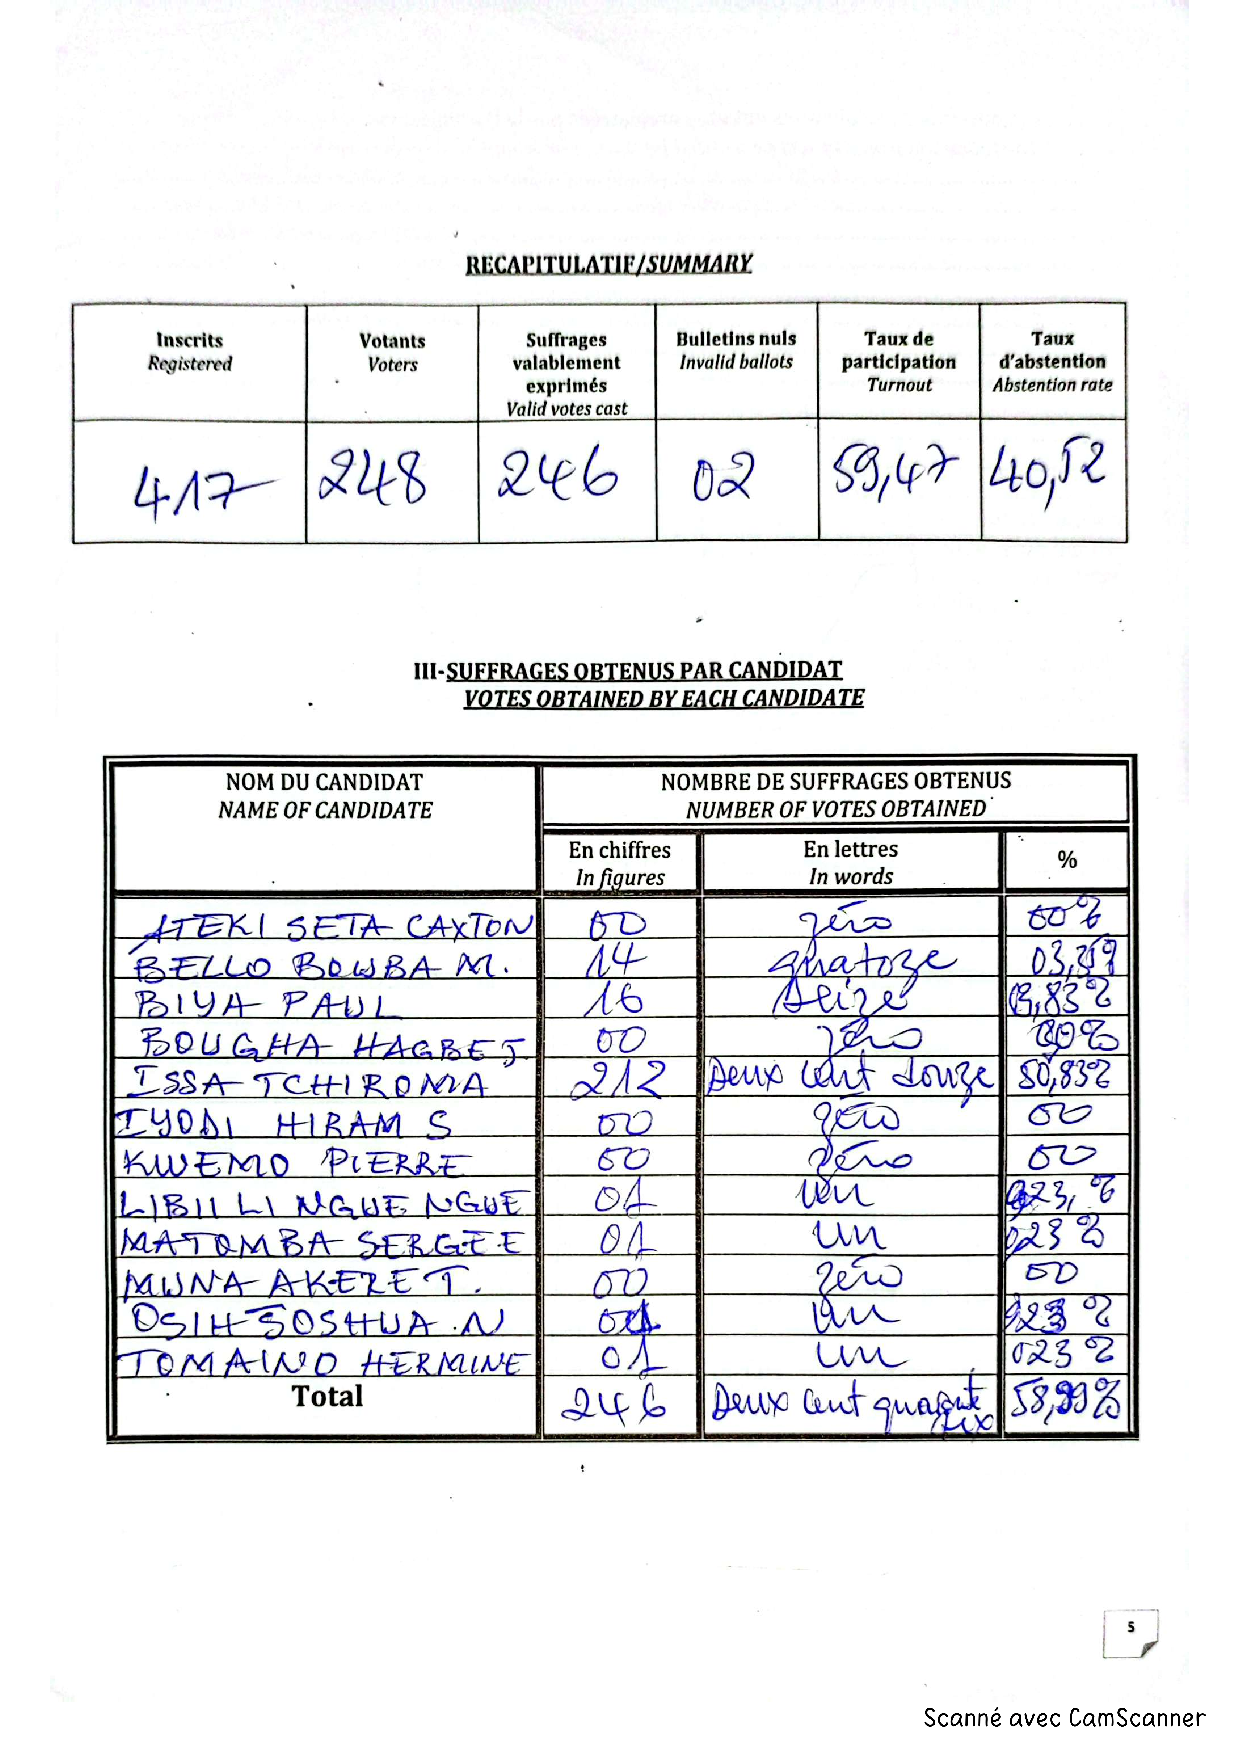 RECAPITULATIF/SUMMARY
Inscrits Registered | Votants Voters | Suffrages valablement exprimés Valid votes cast | Bulletins nuls Invalid ballots | Taux de participation Turnout | Taux d'abstention Abstention rate
417 | 248 | 246 | 02 | 59,47 | 40,52
III-SUFFRAGES OBTENUS PAR CANDIDAT
VOTES OBTAINED BY EACH CANDIDATE
NOM DU CANDIDAT NAME OF CANDIDATE | NOMBRE DE SUFFRAGES OBTENUS NUMBER OF VOTES OBTAINED
En chiffres In figures | En lettres In words | %
ATEKI SETA CAXTON | 00 | zéro | 00%
BELLO BOUBA M. | 14 | quatoze
BIYA PAUL | 16 | Seize
BOUGHA HAGBEJ | 00 | zéro | 00%
ISSA TCHIROMA | 212 | Deux cent douze | 50,83%
IYODI HIRAM S | 00 | zéro | 00
KWEMO PIERRE | 00 | zéro | 00
LIBII LI NGUE NGUE | 01 | un
MATOMBA SERGE E | 01 | un | 023%
MUNA AKERE T. | 00 | zéro | 00
OSIH JOSHUA .N | 01 | un
TOMAINO HERMINE | 01 | un | 023%
Total | 246 | Deux cent quarante six
5
Scanné avec CamScanner